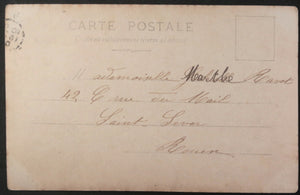 CARTE POSTALE
Mademoiselle Marthe Ravot
42 E rue du Mail
Saint-Sever
Rouen